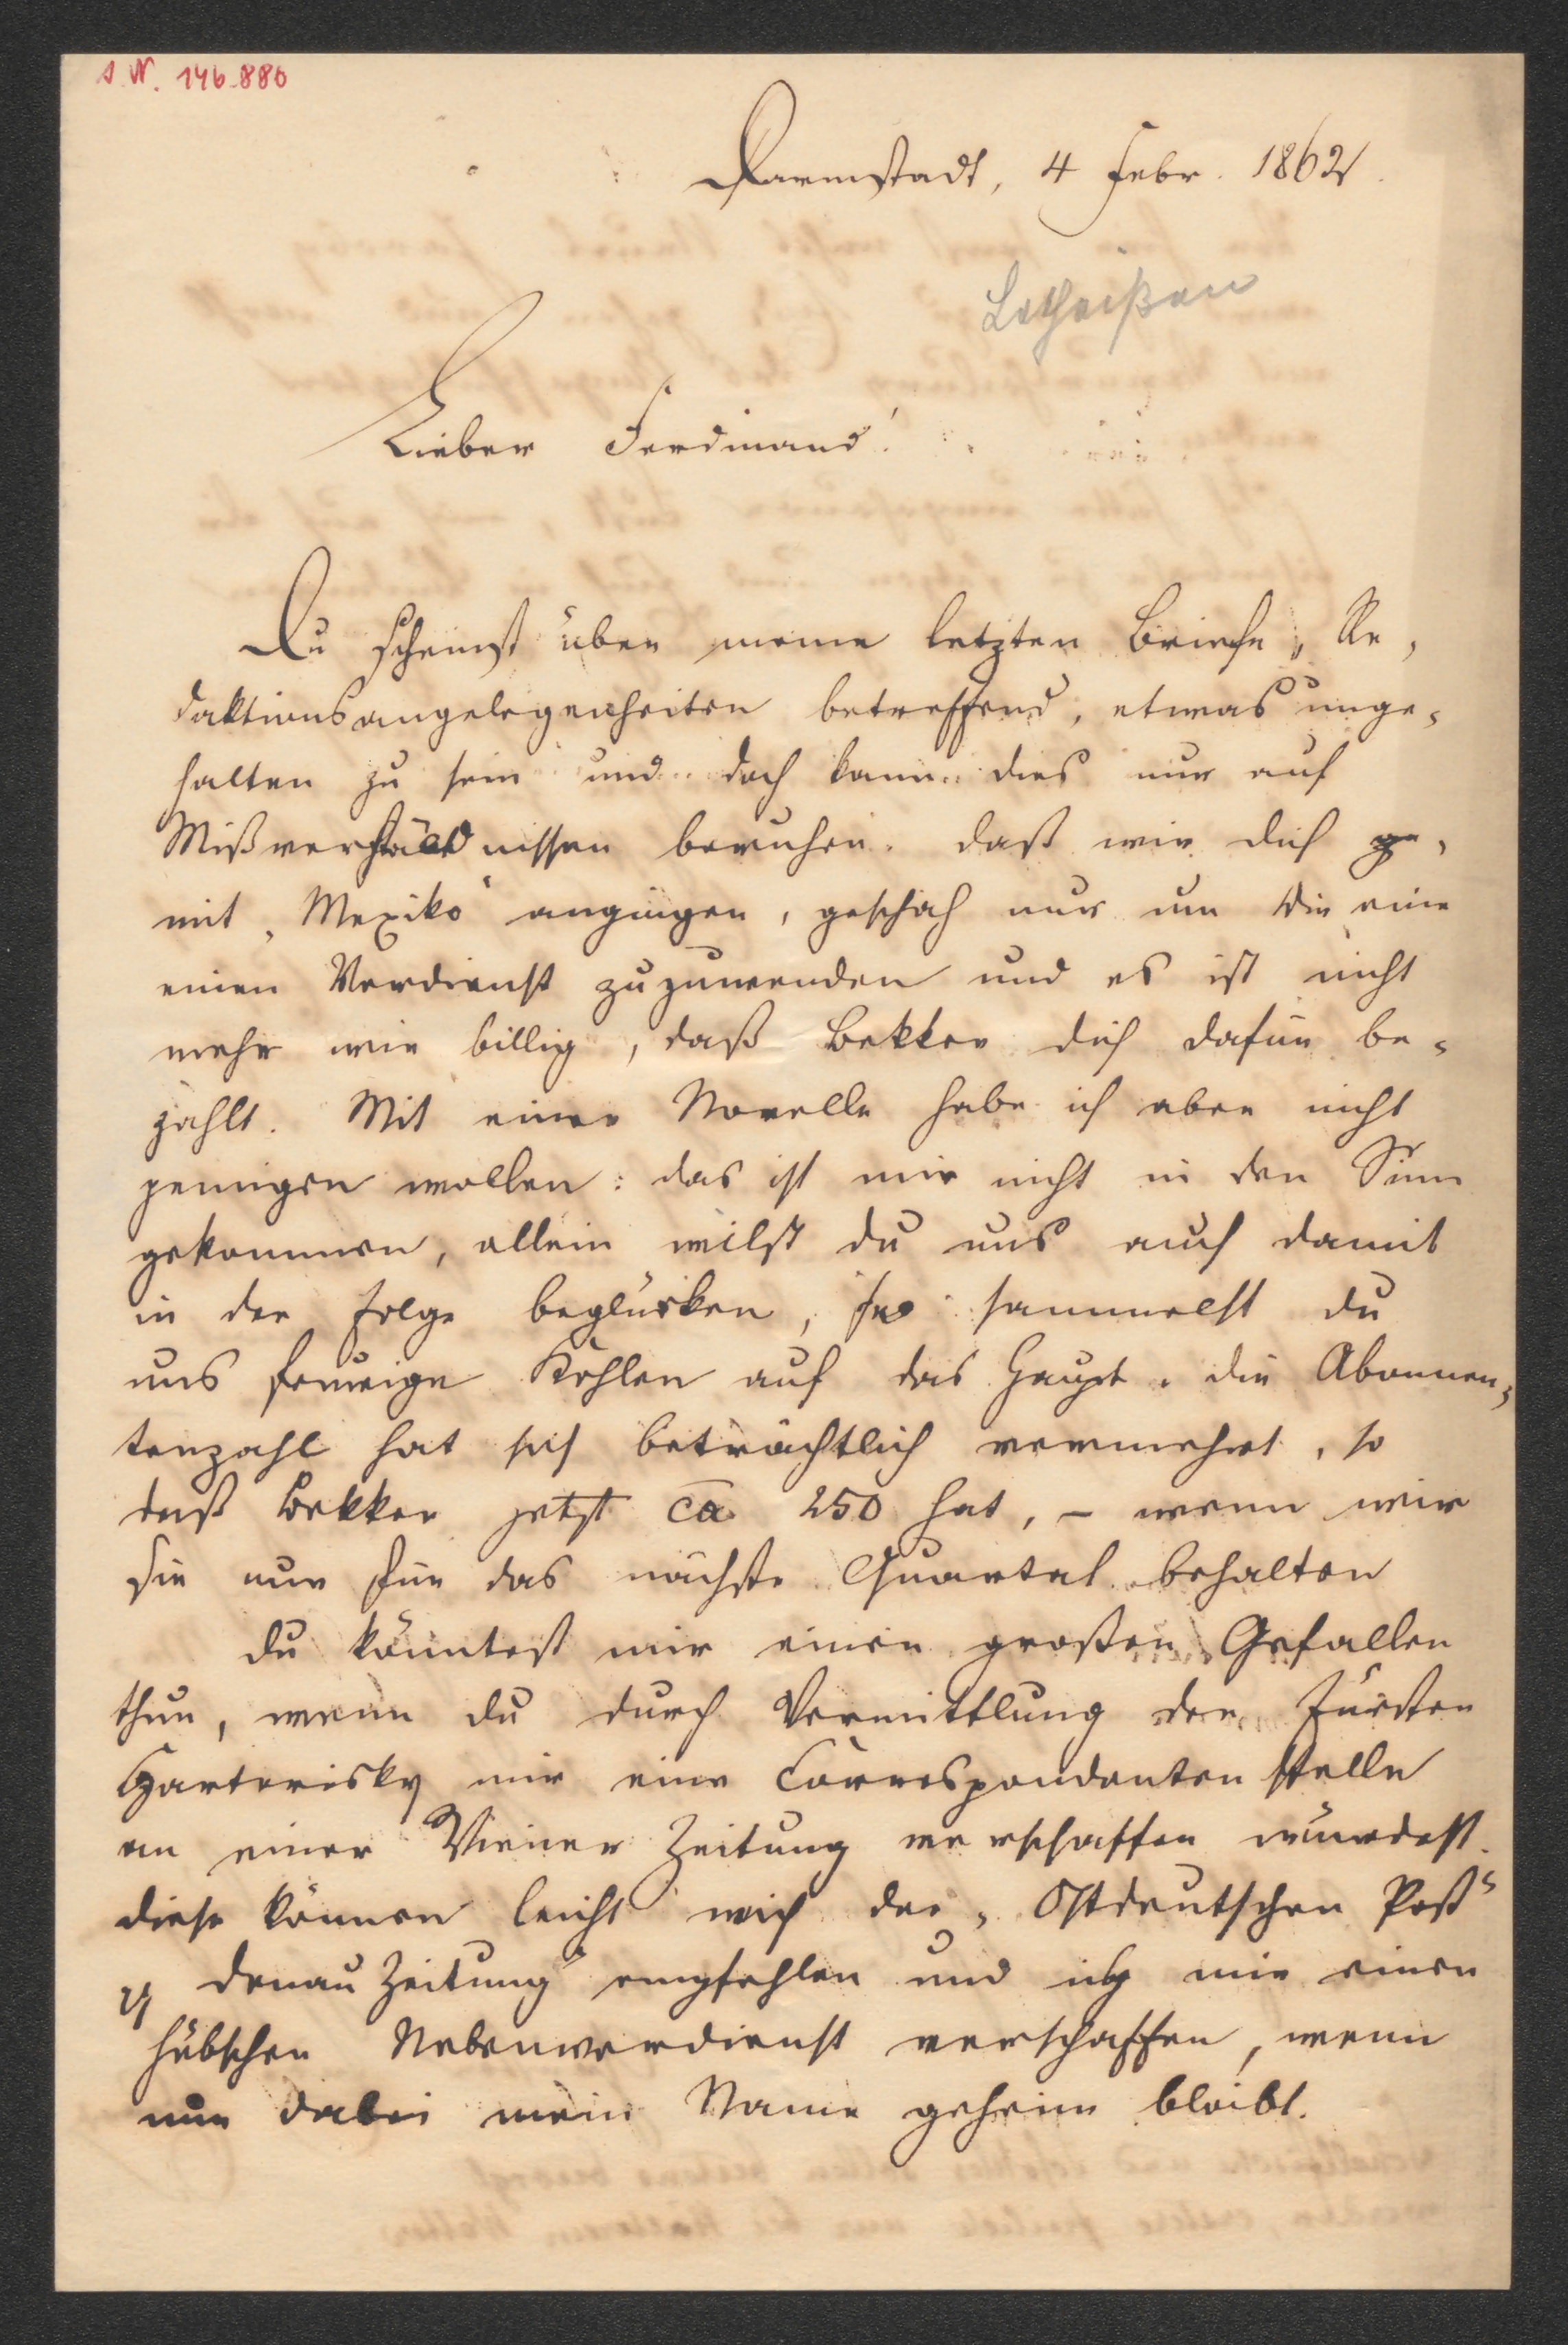 I. N. 146.880
Darmstadt, 4 Febr. 1862.
Lotheißen
Lieber Ferdinand!
Du scheinst über meine letzten Briefe, Re-
daktionsangelegenheiten betreffend, etwas unge-
halten zu sein und doch kann dies nur auf
Mißverständnissen beruhen. Daß wir dich
mit „Mexiko“ angingen, geschah nur um Dir eine
einen Verdienst zuzuwenden und es ist nicht
mehr wie billig, daß Bekker dich dafür be-
zahlt. Mit einer Novelle habe ich aber nicht
peinigen wollen: das ist mir nicht in den Sinn
gekommen, allein willst du uns auch damit
in der Folge beglücken, so sammelst du
uns feurige Kohlen auf das Haupt. die Abonnen-
tenzahl hat sich beträchtlich vermehrt, so
daß Bekker jetzt ca 250 hat, – wenn wir
sie nur für das nächste Quartal behalten
Du könntest mir einen großen Gefallen
thun, wenn du durch Vermittlung der Fürsten
Czartorisky mir eine Correspondanten stelle
an einer Wiener Zeitung verschaffen würdest.
diese können leicht mich der „Ostdeutschen Post“
Donau Zeitung“ empfehlen und mir einen
hübschen Nebenverdienst verschaffen, wenn
nur dabei mein Name geheim bleibt.